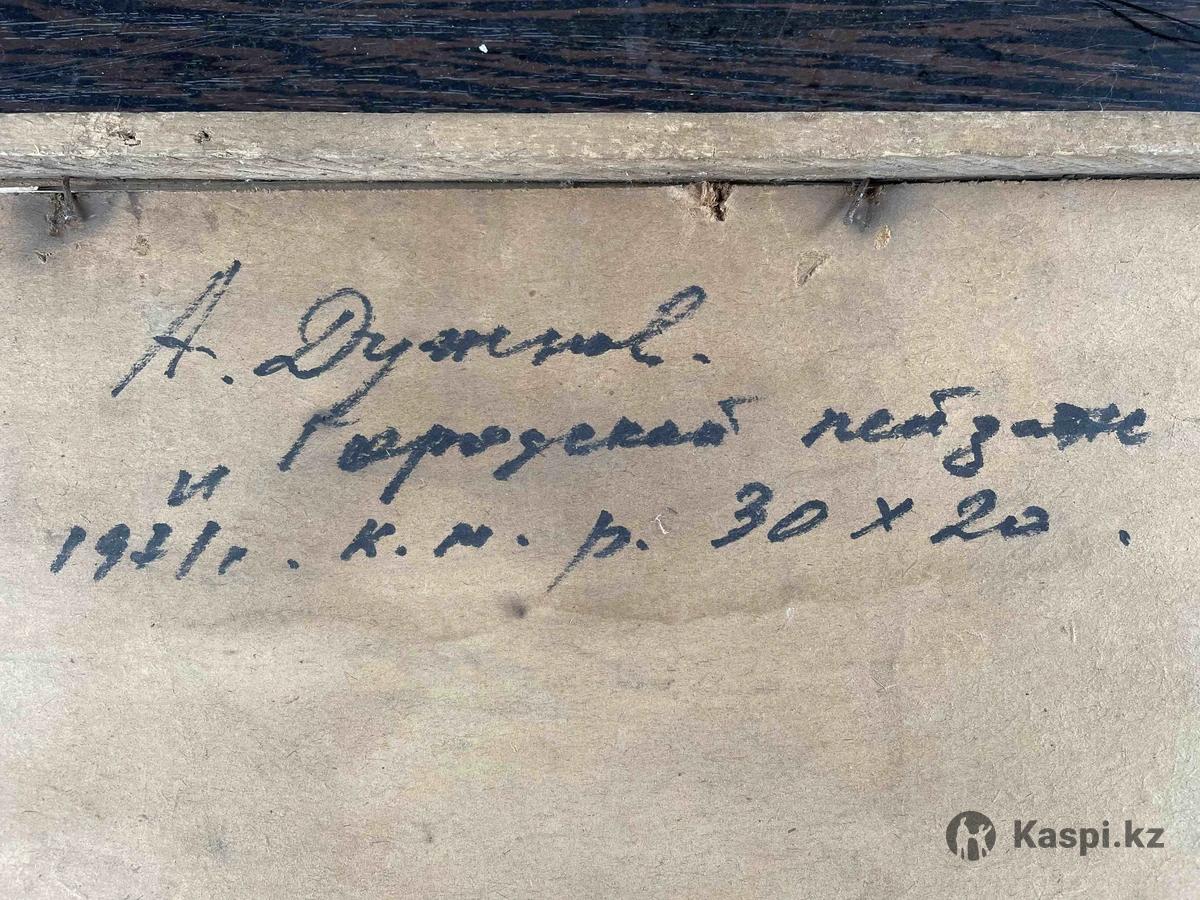 А. Дужнов.
Городской пейзаж
и
1971г. к. м. р. 30 х 20.
Kaspi.kz